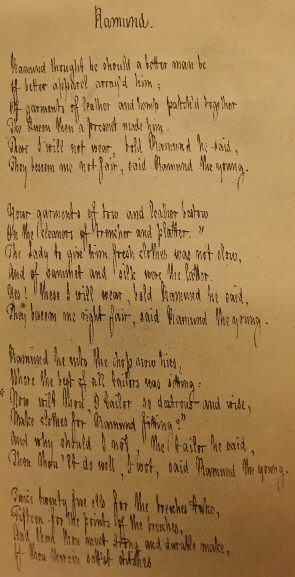 Ramund.
Ramund thought he should a better man be
If better apparel array'd him;
Of garments of leather and hemp patch'd together
The Queen then a present made him.
These I will not wear, bold Ramund he said,
They beseem me not fair, said Ramund the young.
Your garments of tow and leather bestow
On the cleaners of trencher and platter."
The Lady to give him fresh clothes was not slow,
And of sammet and silk were the latter.
Yes! these I will wear, bold Ramund he said,
They beseem me right fair, said Ramund the young.
Ramund he unto the shop now hies,
Where the best of all tailors was sitting:
Now wilt thou, O tailor so dextrous and wise,
Make clothes for Ramund fitting?"
And why should I not, the tailor he said,
Then thou'lt do well, I wot, said Ramund the young.
Twice twenty five ells for the breeches take,
Fifteen for the points of the breeches,
And them thou must strong and durable make,
If thou therein stitches